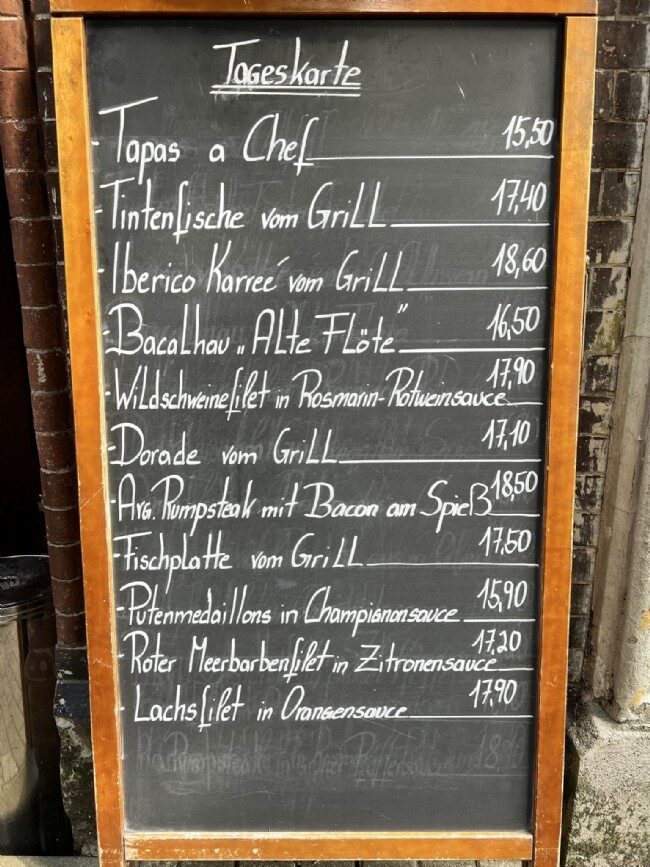 Tageskarte
- Tapas a Chef 15,50
- Tintenfische vom Grill 17,40
- Iberico Karreé vom Grill 18,60
- Bacalhau „Alte Flöte" 16,50
- Wildschweinefilet in Rosmarin-Rotweinsauce 17,90
- Dorade vom Grill 17,10
- Arg. Rumpsteak mit Bacon am Spieß 18,50
- Fischplatte vom Grill 17,50
- Putenmedaillons in Champignonsauce 15,90
- Roter Meerbarbenfilet in Zitronensauce 17,20
- Lachsfilet in Orangensauce 17,90